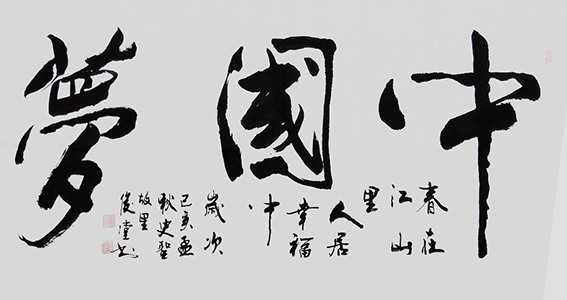 中國夢
春在
江山
里
人居
幸福
中
歲次
己亥孟
秋史聖
故里
俊堂书